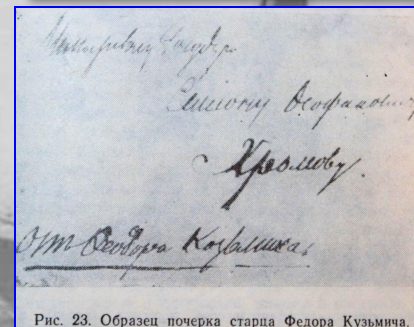 Милостивому Государю
Семиону Феофановичу
Хромову.
От Феодора Козьмича.
Рис. 23. Образец почерка старца Федора Кузьмича.